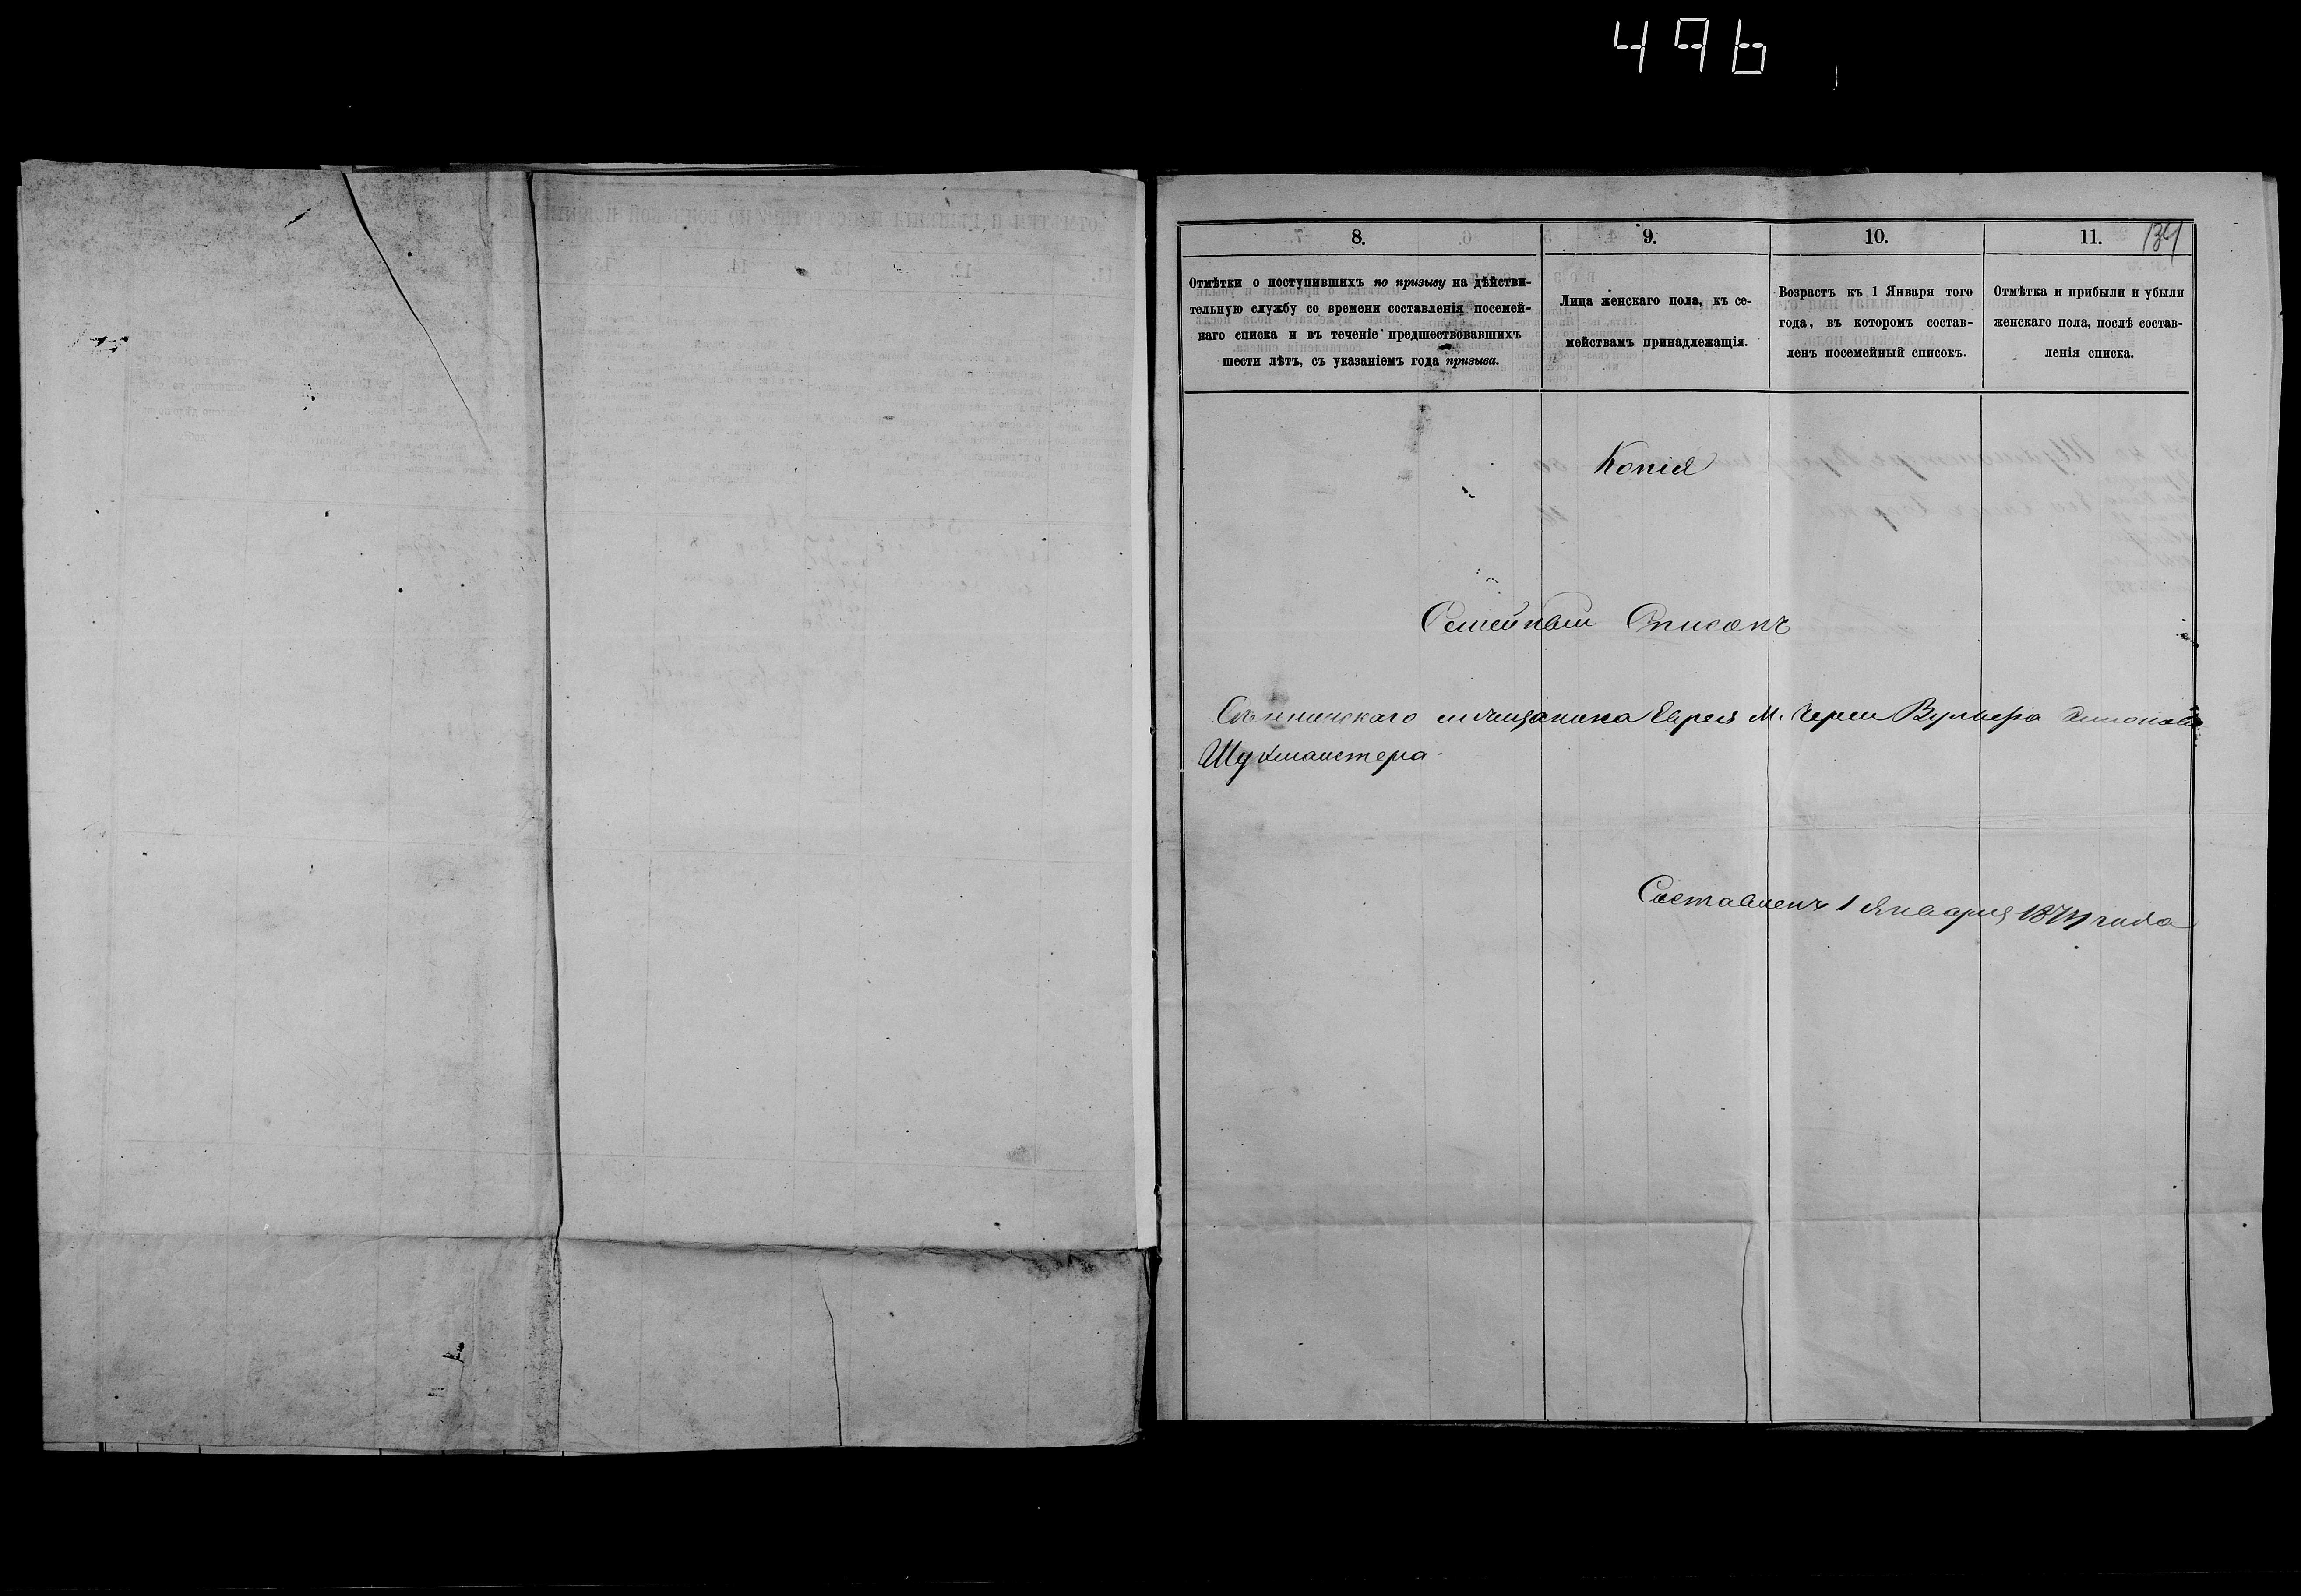 496
8. 9. 10. 11. 134
Отмѣтки о поступившихъ по призыву на дѣйстви-
тельную службу со времени составленія посемей-
наго списка и въ теченіе предшествовавшихъ
шести лѣтъ, съ указаніемъ года призыва.
Лица женскаго пола, къ се-
мействамъ принадлежащія.
Возрастъ къ 1 Января того
года, въ которомъ состав-
ленъ посемейный списокъ.
Отмѣтка и прибыли и убыли
женскаго пола, послѣ состав-
ленія списка.
Копія
Семейный Списокъ
мѣщанина Еврея М. Череи Вульфа
Шукмаистера
Составленъ 1 Января 1874 года